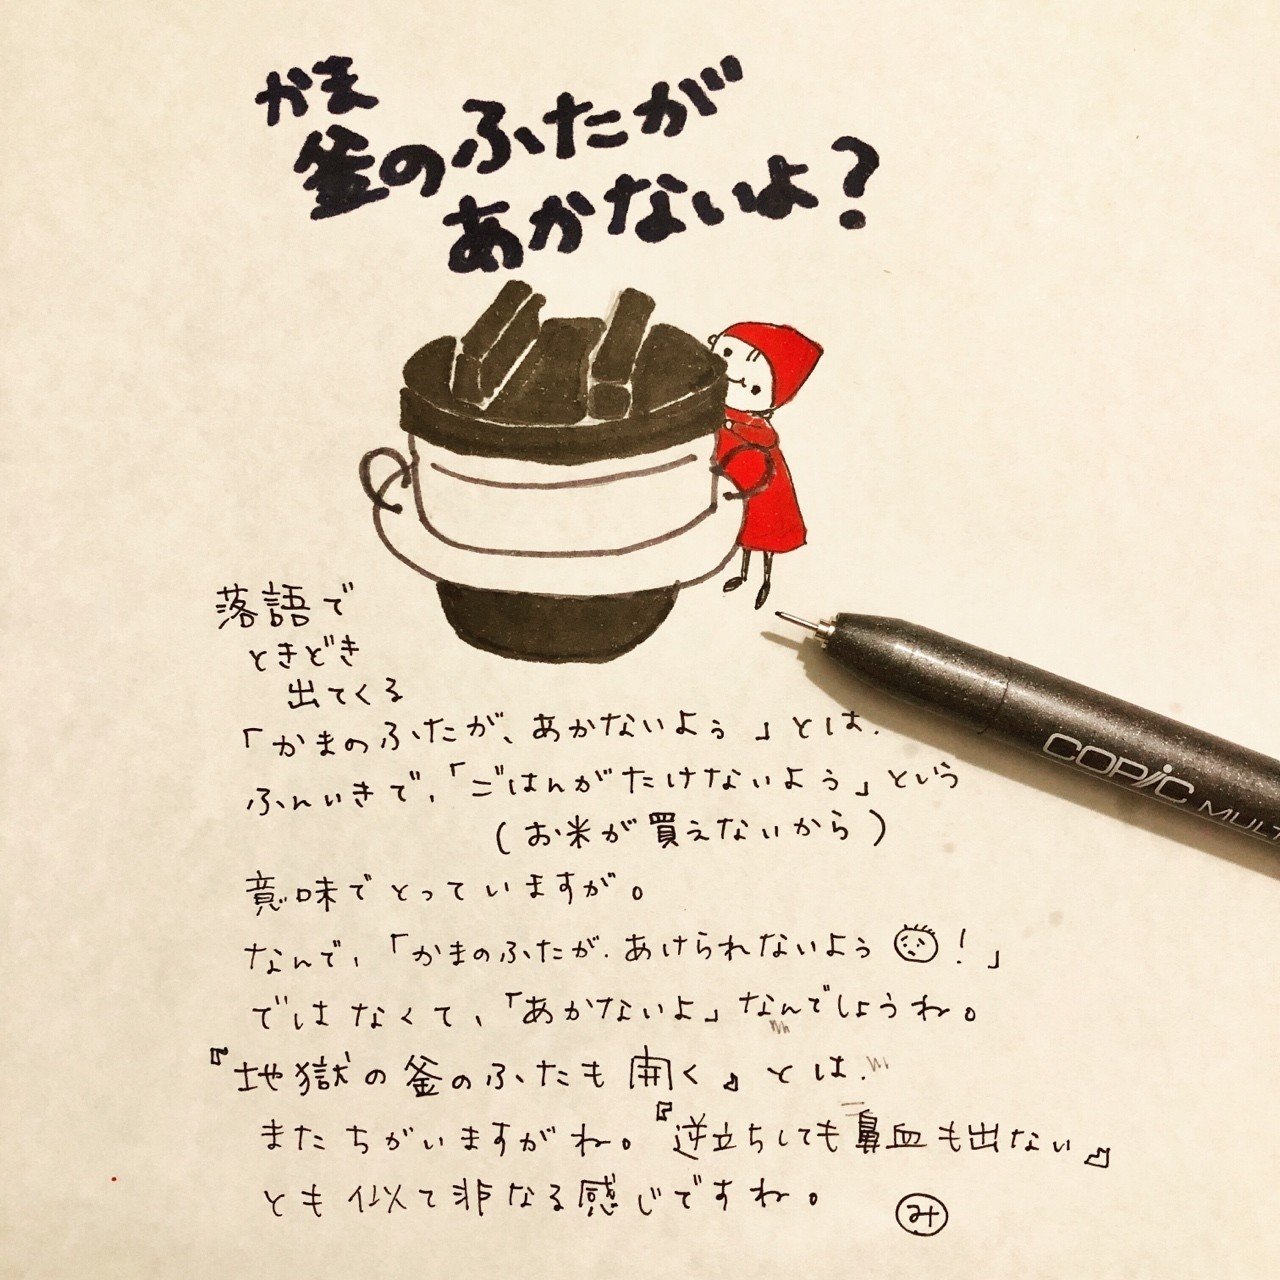 かま
釜のふたが
あかないよ?
落語で
ときどき
出てくる
「かまのふたが、あかないよぅ」とは、
ふんいきで、「ごはんがたけないよぅ」という
(お米が買えないから)
意味でとっていますが。
なんで、「かまのふたが、あけられないよぅ!」
ではなくて、「あかないよ」なんでしょうね。
『地獄の釜のふたも開く』とは、
またちがいますがね。『逆立ちしても鼻血も出ない』
とも似て非なる感じですね。
み
COPIC MULT